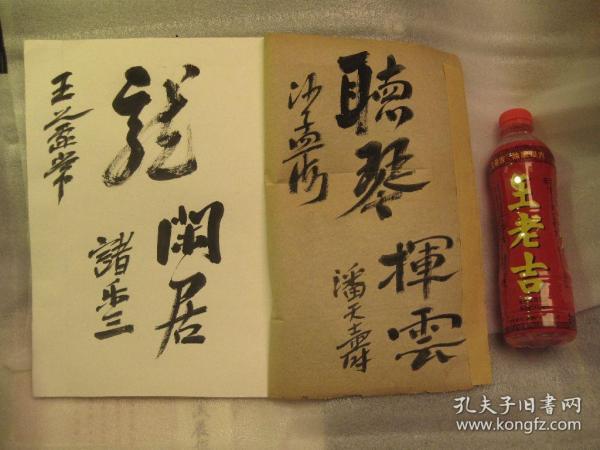 聽琴
沙孟海
揮雲
潘天壽
龍
王蘧常
閑居
諸樂三
王老吉
孔夫子旧书网
www.kongfz.com